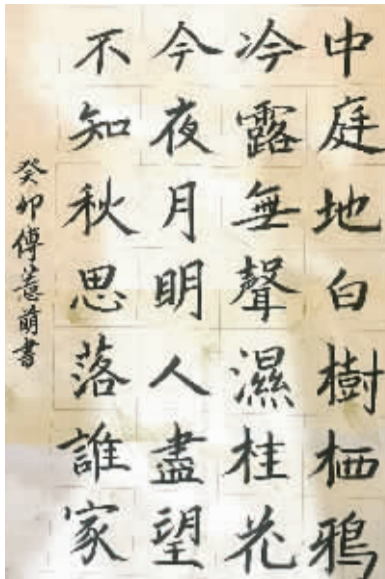 中庭地白樹栖鴉
冷露無聲濕桂花
今夜月明人盡望
不知秋思落誰家
癸卯傅蕙萌書